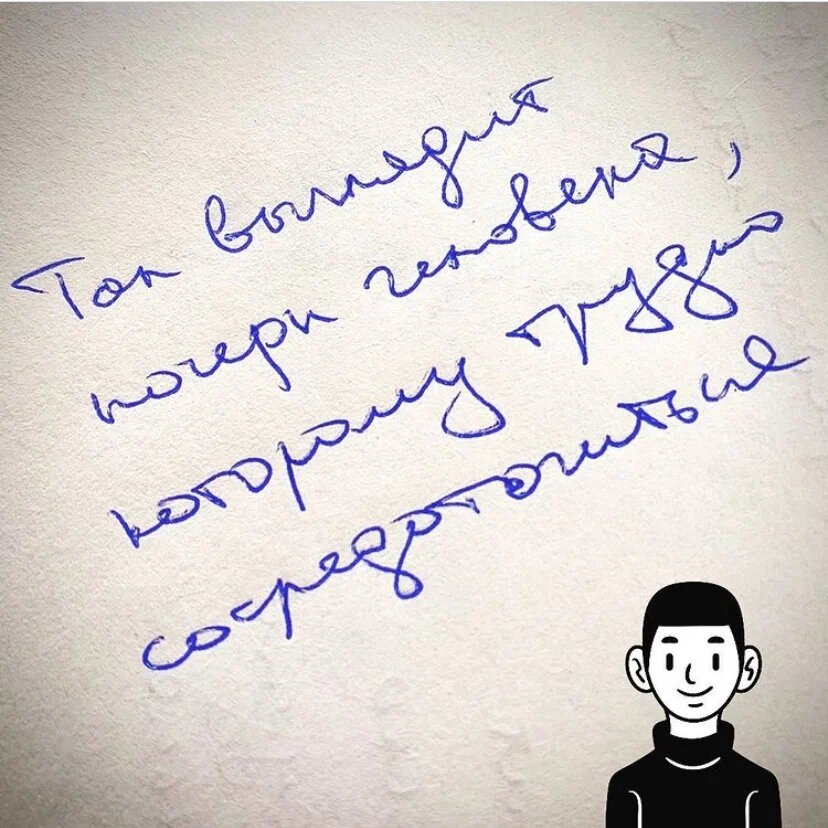 Так выглядит
почерк человека,
которому трудно
сосредоточиться